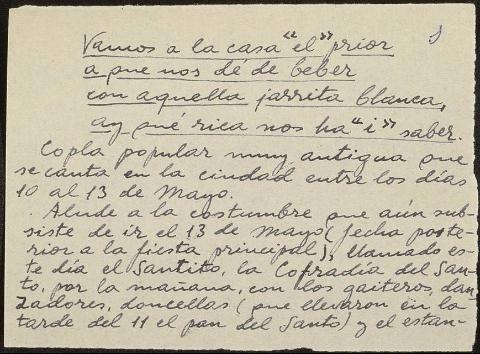 Vamos a la casa "el" prior
a que nos dé de beber
con aquella jarrita blanca,
ay qué rica nos ha "i" saber.
Copla popular muy antigua que
se canta en la ciudad entre los días
10 al 13 de Mayo.
. Alude a la costumbre que aún sub-
siste de ir el 13 de Mayo (fecha poste-
rior a la fiesta principal), llamado es-
te día el Santito, la Cofradía del San-
to, por la mañana, con los gaiteros, dan-
zadores, doncellas (que llevaron en la
tarde del 11 el pan del Santo) y el estan-